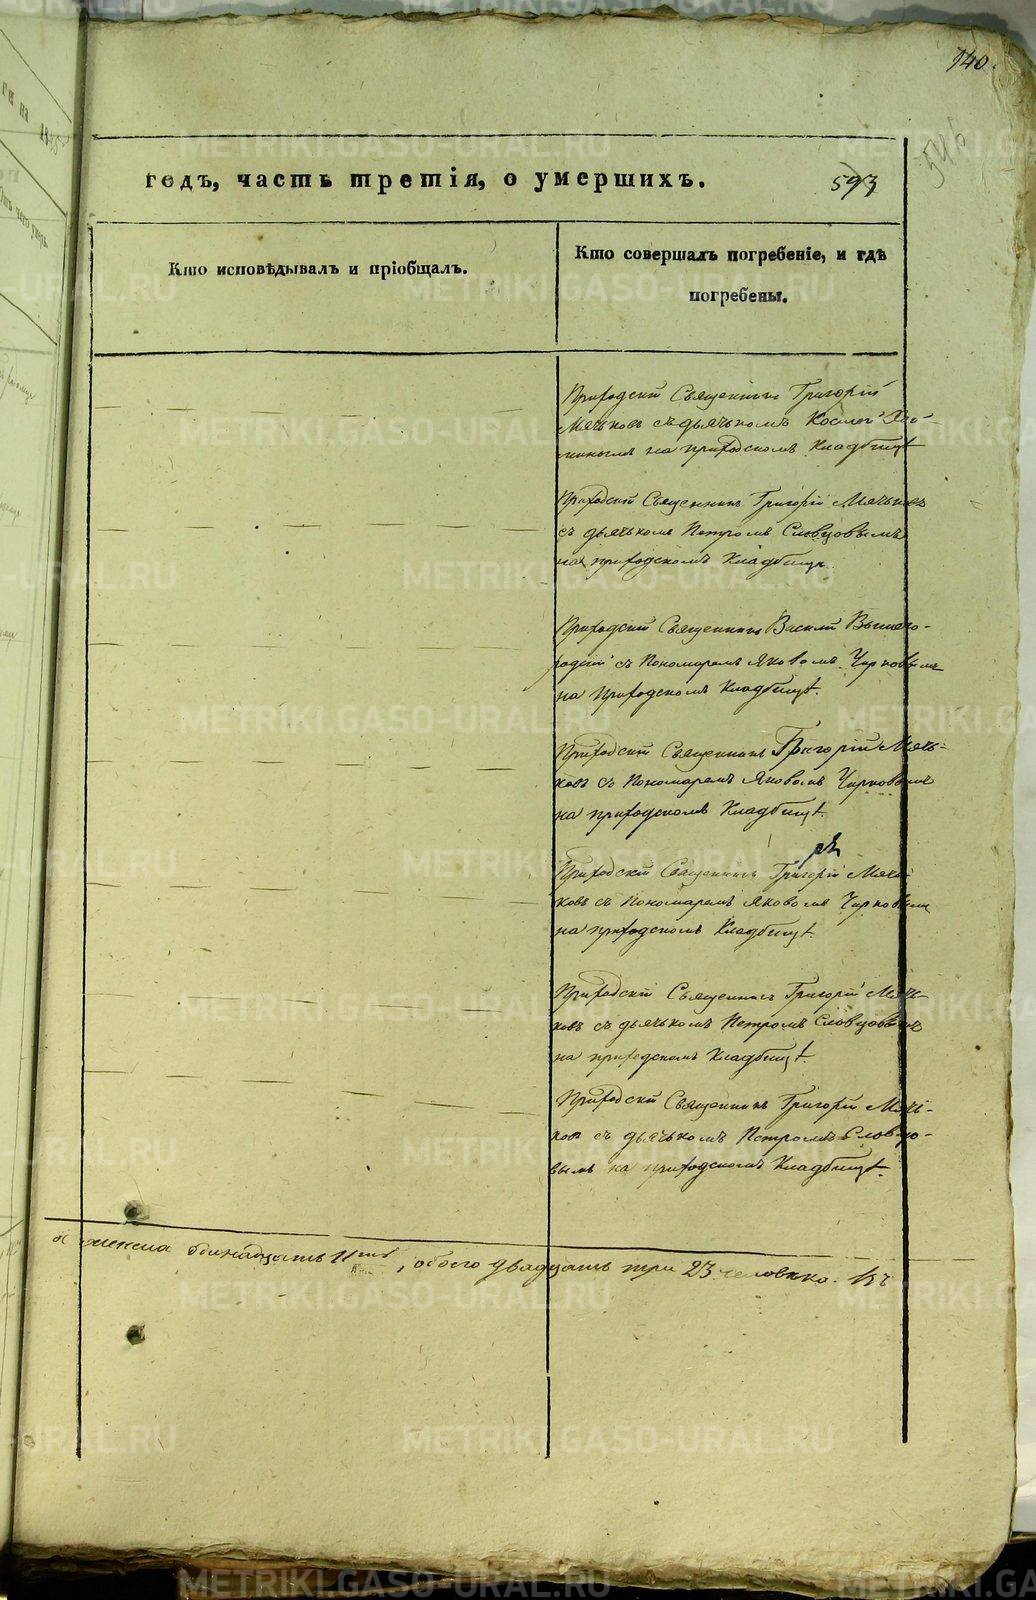 140.
546
годъ, часть третія, о умершихъ.
593
Кто исповѣдывалъ и пріобщалъ.
Кто совершалъ погребеніе, и гдѣ
погребены.
Приходскій Священникъ Григорій
Мячьковъ съ дьячькомъ Космой
на приходскомъ Кладбищѣ
Приходскій Священникъ Григорій Мячьковъ
съ дьячькомъ Петромъ Словцовымъ
на приходскомъ Кладбищѣ.
Приходскій Священникъ Василій Вышего-
родскій съ Пономаремъ Яковомъ Чирковымъ
на Приходскомъ Кладбищѣ.
Приходскій Священникъ Григорій Мячь-
ковъ съ Пономаремъ Яковомъ Чирковымъ
на приходскомъ Кладбищѣ.
Приходскій Священникъ Григорій Мячь-
ковъ съ Пономаремъ Яковомъ Чирковымъ
на приходскомъ Кладбищѣ.
Приходскій Священникъ Григорій Мячь-
ковъ съ дьячькомъ Петромъ Словцовымъ
на приходскомъ Кладбищѣ.
Приходскій Священникъ Григорій Мячь-
ковъ съ дьячькомъ Петромъ Словцо-
вымъ на приходскомъ Кладбищѣ.
женска одинадцать 11ть, обоего двадцать три 23 человѣка.
METRIKI.GASO-URAL.RU